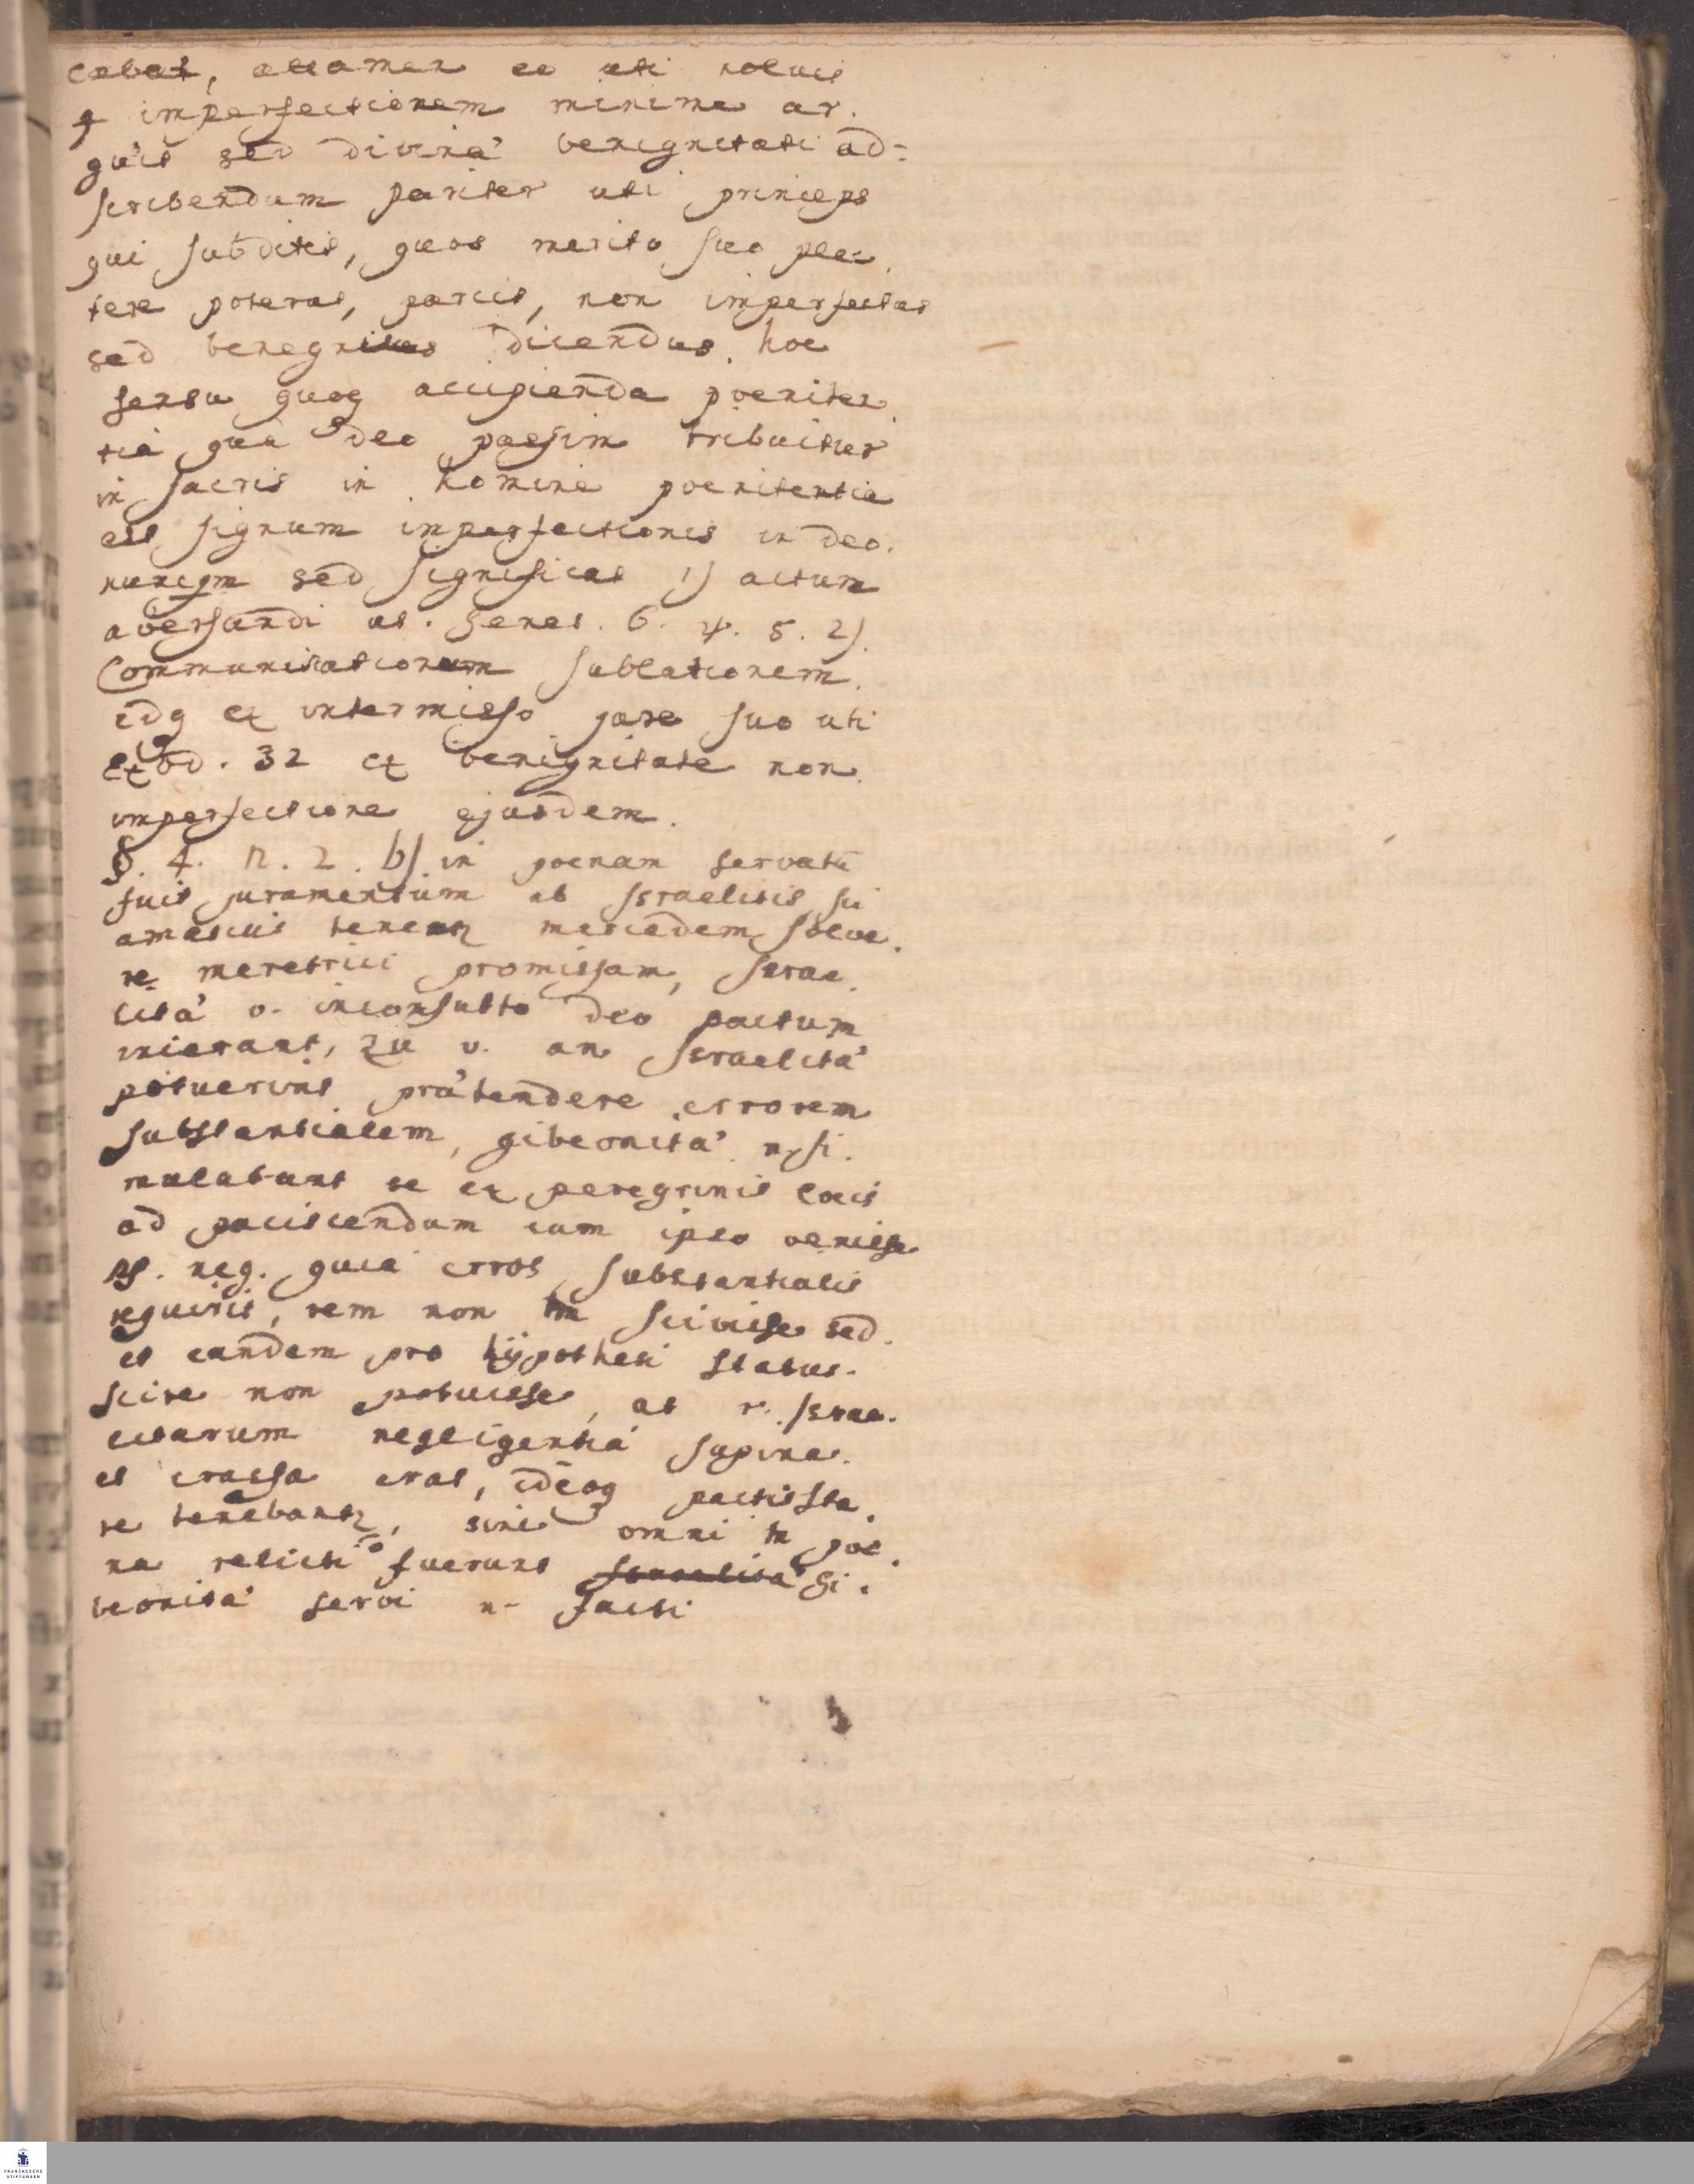 cebat, attamen eo uti noluit
q imperfectionem minime ar.
guit sed divina' benignitati ad=
scribendum pariter uti princeps
qui subditis, quos merito suo plec.
tere poterat, parcit, non imperfectus
sed benegnus dicendus. hoc
sensu quoq accipienda poeniten.
tia qua Deo passim tribuitur
in sacris in homine poenitentia
est signum imperfectionis in Deo.
nuncqm sed significat 1) actum
aversandi ut. Genes. 6. v. 5. 2).
Communicationum sublationem.
idq ex intermisso jure suo uti
exod. 32 ex benignitate non
imperfectione ejusdem.
§. 4. n. 2. b) in poenam servatu
fuit juramentum ab Israelitis sic
amasius tenetur mercedem solve.
re meretrici promissam, Israe.
lita' o. inconsulto Deo pactum
inierant, zu v. an Israelita'
potuerint pra'tendere errorem
substantialem, gibeonita' n. si.
mulabant se ex peregrinis locis
ad paciscendum cum ipso venisse
rs. neg. quia error substantialis
requirit, rem non tn scivisse sed.
et eandem pro hÿpothesi status.
scire non potuisse, at r. Israe.
litarum negligentia supina.
et crassa erat, ideoq pactis sta.
re tenebantr, sine omni tn poe.
na relicti fuerunt Israelita' Gi.
beonita' servi n- facti
FRANCKESCHE
STIFTUNGEN